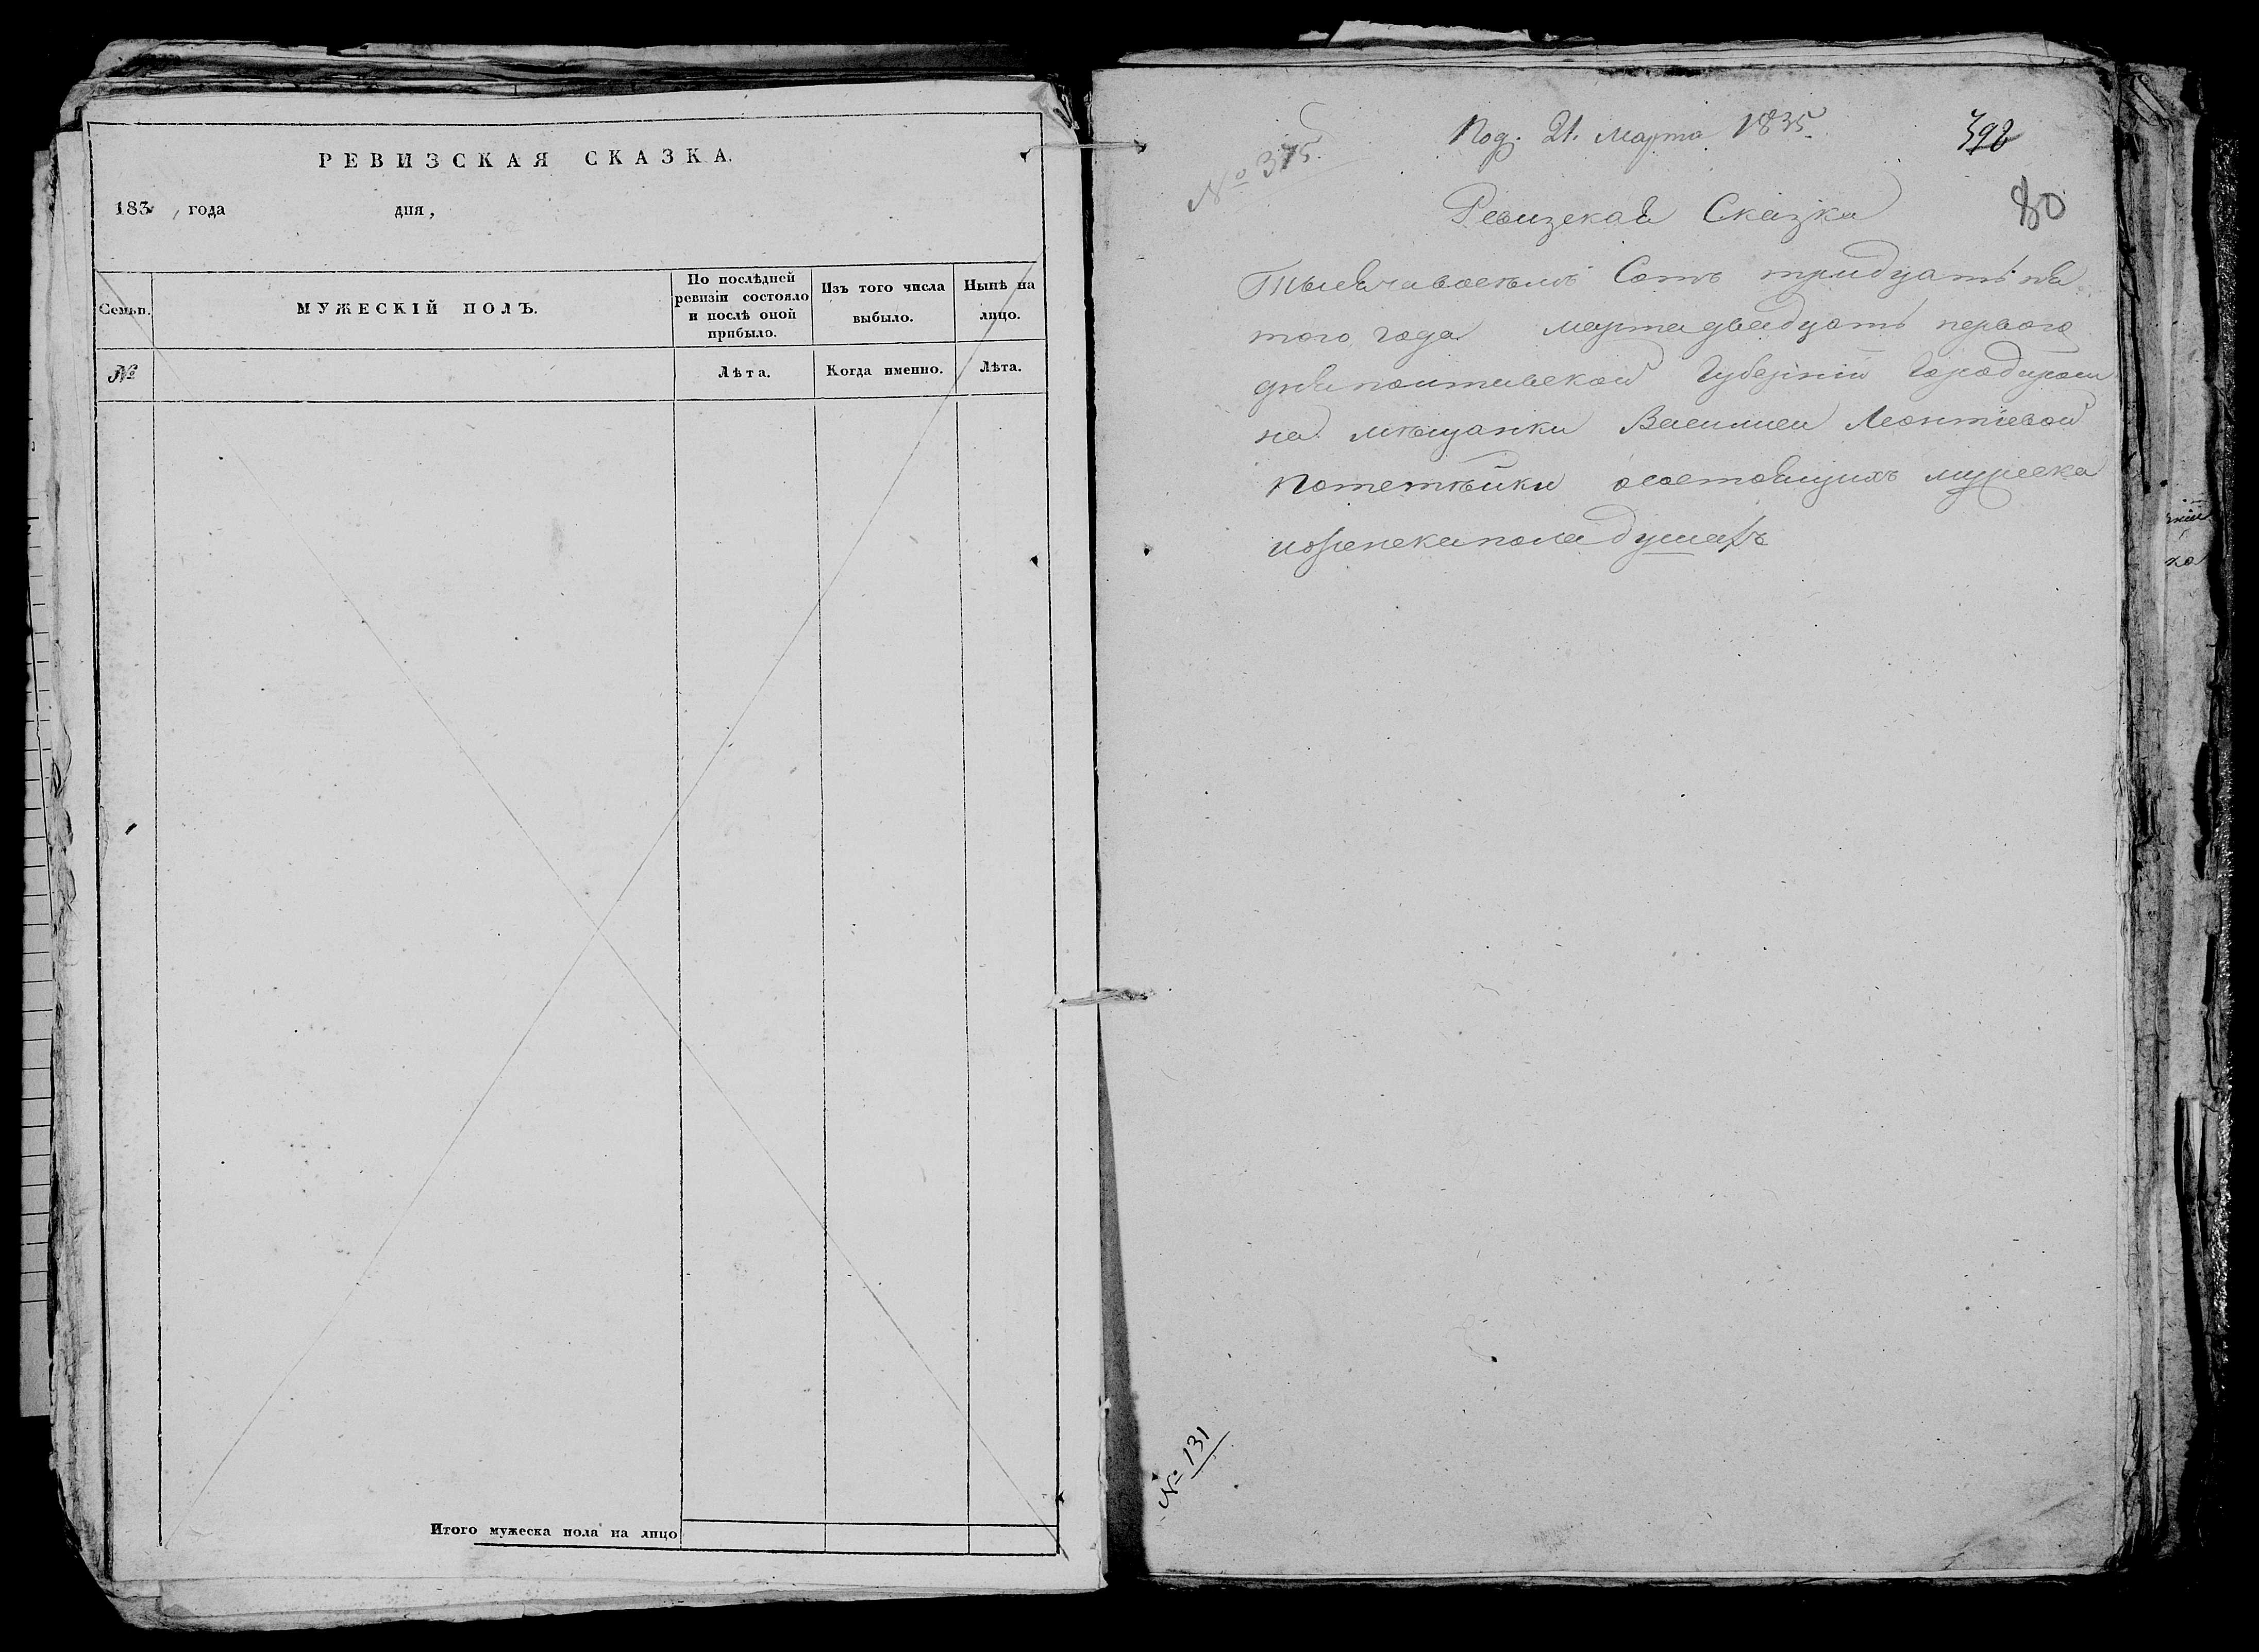 РЕВИЗСКАЯ СКАЗКА.
183 , года дня,
Семьи.
МУЖЕСКІЙ ПОЛЪ.
По послѣдней
ревизіи состояло
и послѣ оной
прибыло.
Изъ того числа
выбыло.
Нынѣ на
лицо.
№
Лѣта.
Когда именно.
Лѣта.
Итого мужеска пола на лицо
№ 375.
Под. 21. Марта 1835
392
80
Ревизская Сказка
Тысяча восемь Сотъ тридцать пя
того года марта двадцать первого
дня полтавской Губерніи
на мѣщанки Василисы Леонтіевой
состоящихъ мужеска
и женска пола душахъ
№ 131